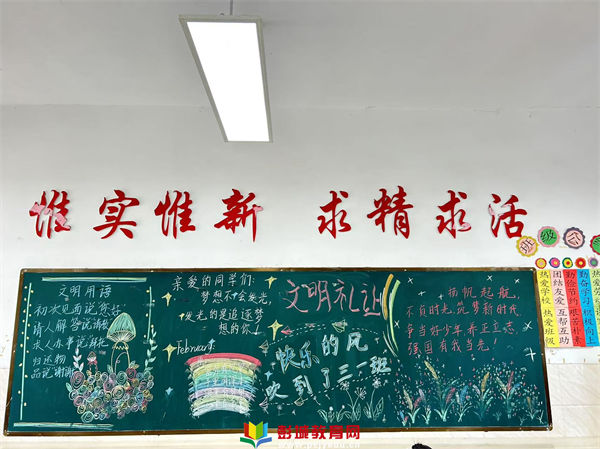 惟实惟新 求精求活
班级公
文明用语
初次见面说您好
请人解答说请教
求人办事说拜托
归还物
品说谢谢
亲爱的同学们:
梦想不会发光,
发光的是追逐梦
想的你!
February
文明礼让
快乐的风
吹到了三一班
扬帆起航
不负时光筑梦新时代
争当好少年 养正立志
强国有我当先!
热爱学校 热爱班级
团结友爱 互帮互助
勤俭节约 艰苦朴素
勤奋学习 积极向上
彭城教育网